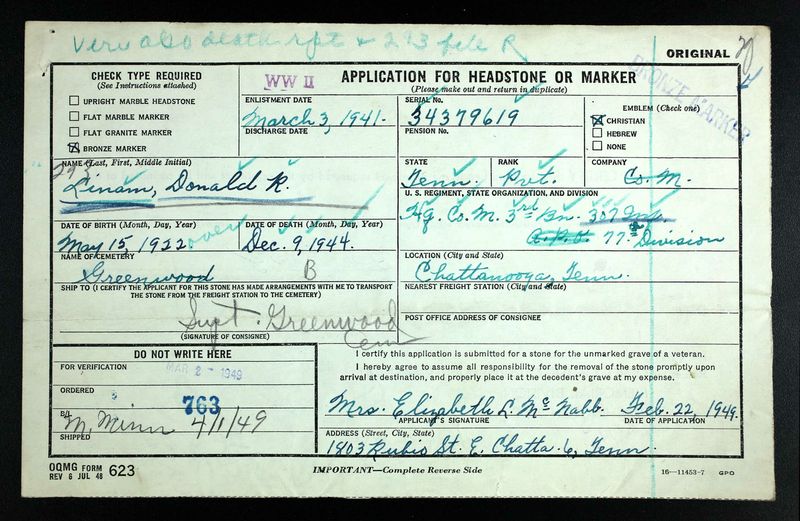 Veri also death rpt & 293 file R
ORIGINAL
BRONZE MARKER
CHECK TYPE REQUIRED
(See Instructions attached)
UPRIGHT MARBLE HEADSTONE
FLAT MARBLE MARKER
FLAT GRANITE MARKER
BRONZE MARKER
WW II
APPLICATION FOR HEADSTONE OR MARKER
(Please make out and return in duplicate)
ENLISTMENT DATE
March 3, 1941-
DISCHARGE DATE
SERIAL No.
34379619
PENSION No.
EMBLEM (Check one)
CHRISTIAN
HEBREW
NONE
NAME (Last, First, Middle Initial)
293
Linam, Donald R.
STATE
Tenn.
RANK
Pvt.
COMPANY
Co. M.
U. S. REGIMENT, STATE ORGANIZATION, AND DIVISION
Hq. Co. M. 3rd Bn. 307 Inf.
A.P.O. 77th Division
DATE OF BIRTH (Month, Day, Year)
May 15, 1922
over
DATE OF DEATH (Month, Day, Year)
Dec. 9, 1944.
NAME OF CEMETERY
Greenwood B
LOCATION (City and State)
Chattanooga, Tenn.
SHIP TO (I CERTIFY THE APPLICANT FOR THIS STONE HAS MADE ARRANGEMENTS WITH ME TO TRANSPORT THE STONE FROM THE FREIGHT STATION TO THE CEMETERY)
NEAREST FREIGHT STATION (City and State)
Supt. Greenwood
Cem
(SIGNATURE OF CONSIGNEE)
POST OFFICE ADDRESS OF CONSIGNEE
DO NOT WRITE HERE
FOR VERIFICATION
MAR 2 - 1949
ORDERED
763
B/L
4/1/49
SHIPPED
I certify this application is submitted for a stone for the unmarked grave of a veteran.
I hereby agree to assume all responsibility for the removal of the stone promptly upon
arrival at destination, and properly place it at the decedent's grave at my expense.
Mrs. Elizabeth L. McNabb. Feb. 22, 1949.
APPLICANT'S SIGNATURE
DATE OF APPLICATION
ADDRESS (Street, City, State)
1803 Rubio St. E. Chatta. 6, Tenn.
OQMG FORM 623
REV 6 JUL 48
IMPORTANT—Complete Reverse Side
16—11453-7 GPO